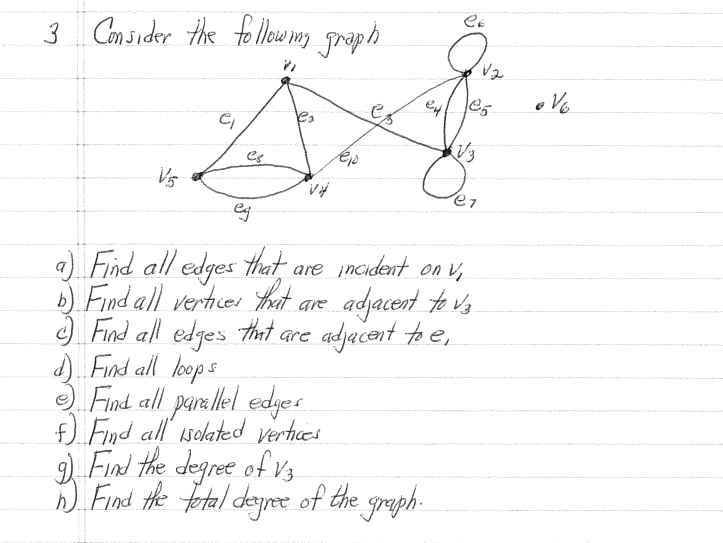 3 Consider the following graph
e6
v1
v2
e1 e2 e3 e4 e5 v6
e8 e10 v3
v5 v4
e9 e7
a) Find all edges that are incident on v1
b) Find all vertices that are adjacent to v3
c) Find all edges that are adjacent to e1
d) Find all loops
e) Find all parallel edges
f) Find all isolated vertices
g) Find the degree of v3
h) Find the total degree of the graph.